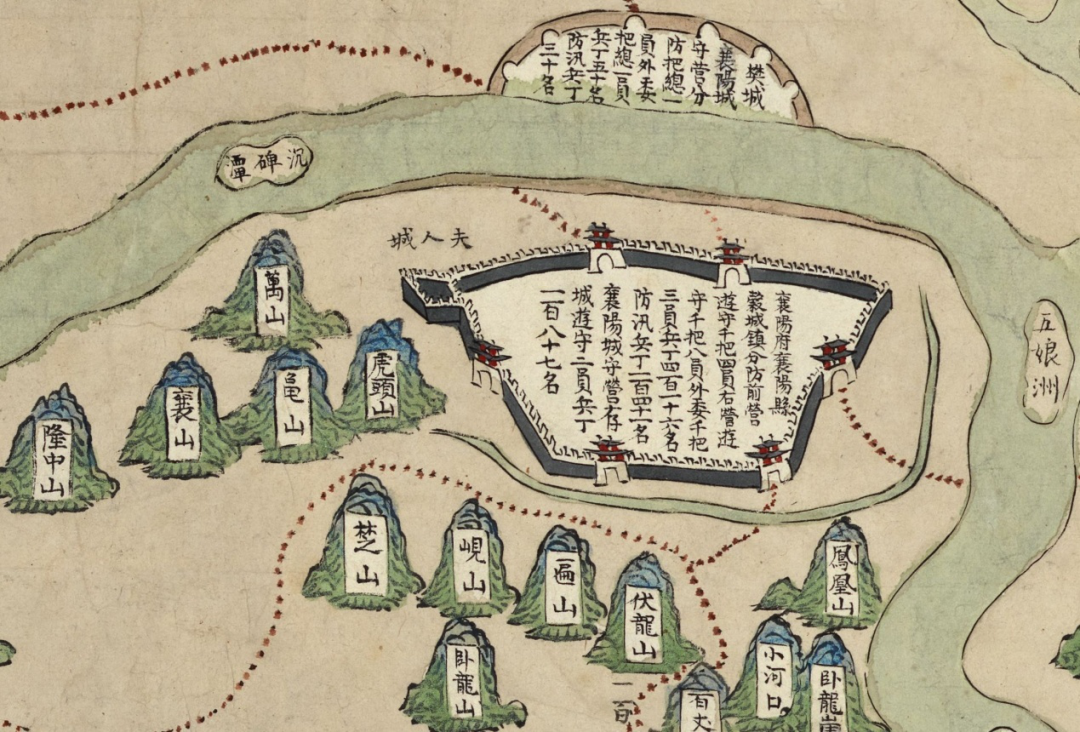 樊城
襄陽城
守營分
防把總一
員外委
把總一員
兵丁五十名
防汛兵丁
三十名
沉碑潭
夫人城
襄陽府襄陽縣
穀城鎮分防前營
遊守千把四員右營遊
守千把八員外委千把
三員兵丁四百一十六名
防汛兵丁二百四十一名
襄陽城守營存
城遊守二員兵丁
一百八十七名
五娘洲
萬山
虎頭山
龜山
襄山
隆中山
楚山
峴山
一匾山
伏龍山
鳳凰山
臥龍山
小河口
臥龍崖
百丈
一百